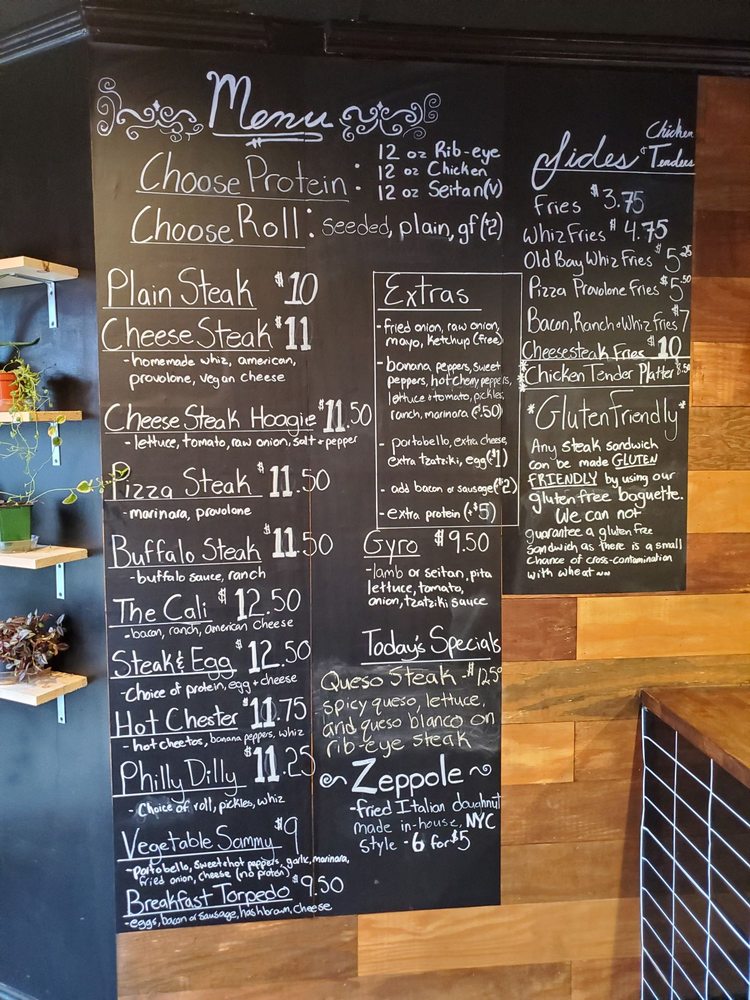 Menu
Choose Protein: 12 oz Rib-eye
12 oz Chicken
12 oz Seitan(v)
Choose Roll: seeded, plain, gf(+2)
Plain Steak $10
Cheese Steak $11
-homemade whiz, american,
provolone, vegan cheese
Cheese Steak Hoagie $11.50
-lettuce, tomato, raw onion, salt + pepper
Pizza Steak $11.50
-marinara, provolone
Buffalo Steak $11.50
-buffalo sauce, ranch
The Cali $12.50
-bacon, ranch, american cheese
Steak & Egg $12.50
-Choice of protein, egg + cheese
Hot Chester $11.75
-hot cheetos, banana peppers, whiz
Philly Dilly $11.25
- Choice of roll, pickles, whiz
Vegetable Sammy $9
-Portobello, sweet+hot peppers, garlic, marinara,
fried onion, cheese (no protein)
Breakfast Torpedo $9.50
-eggs, bacon or sausage, hashbrown, cheese
Extras
-fried onion, raw onion,
mayo, ketchup (free)
-banana peppers, sweet
peppers, hot cherry peppers,
lettuce + tomato, pickles,
ranch, marinara ($.50)
- portobello, extra cheese,
extra tzatziki, egg ($1)
- add bacon or sausage ($2)
-extra protein (+$5)
Gyro $9.50
-lamb or seitan, pita
lettuce, tomato,
onion, tzatziki sauce
Today's Specials
Queso Steak -$12.50
spicy queso, lettuce,
and queso blanco on
rib-eye steak
~Zeppole~
-fried Italian doughnut
made in-house, NYC
style - 6 for $5
Sides & Chicken
Tenders
Fries $3.75
Whiz Fries $4.75
Old Bay Whiz Fries $5.25
Pizza Provolone Fries $5.50
Bacon, Ranch + Whiz Fries $7
Cheesesteak Fries $10
Chicken Tender Platter 8.50
*Gluten Friendly*
Any steak sandwich
can be made GLUTEN
FRIENDLY by using our
gluten free baguette.
We can not
guarantee a gluten free
sandwich as there is a small
chance of cross-contamination
with wheat ~~